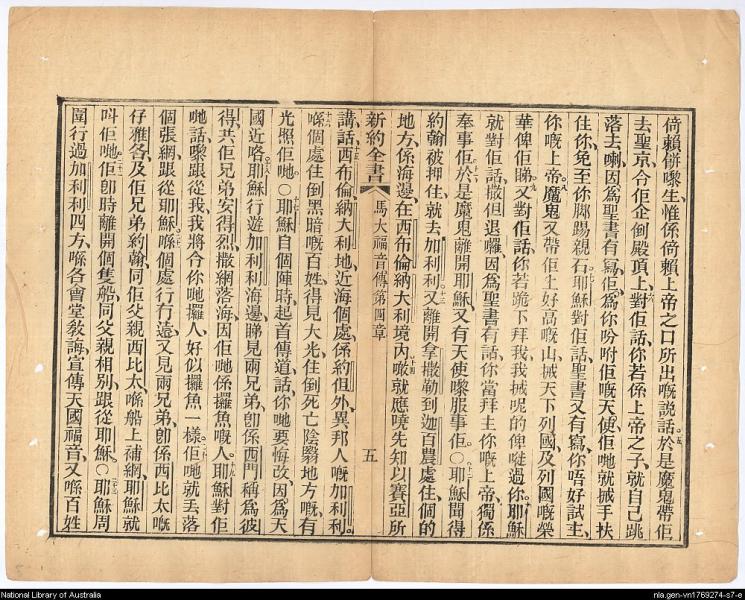 倚賴餠嚟生、惟係倚賴上帝之口所出嘅說話。於是魔鬼帶佢
去聖京、令佢企倒殿頂上、對佢話、你若係上帝之子、就自己跳
落去喇、因爲聖書有寫、佢爲你吩咐佢嘅天使、佢哋就搣手扶
住你、免至你脚踢親石。耶穌對佢話、聖書又有寫、你唔好試主、
你嘅上帝。魔鬼又帶佢上好高嘅山、搣天下列國、及列國嘅榮
華俾佢睇、又對佢話、你若跪下拜我、我搣呢的俾𠵽過你。耶穌
就對佢話、撒但退囉、因爲聖書有話、你當拜主你嘅上帝、獨係
奉事佢。於是魔鬼離開耶穌、又有天使嚟服事佢。○耶穌聞得
約翰被押住、就去加利利、又離開拿撒勒、到迦百農處住、個的
地方、係海邊、在西布倫納大利境內、噉就應曉先知以賽亞所
新約全書 馬太福音傳第四章 五
講話、西布倫、納大利地、近海個處、係約但外、異邦人嘅加利利、
喺個處住倒黑暗嘅百姓、得見大光、住倒死亡陰翳地方嘅、有
光照佢哋。○耶穌自個陣時起首傳道話、你哋要悔改、因爲天
國近咯。耶穌行遊加利利海邊、睇見兩兄弟、卽係西門稱爲彼
得、共佢兄弟安得烈、撒網落海、因佢哋係攞魚嘅人。耶穌對佢
哋話、嚟跟從我、我將令你哋攞人、好似攞魚一樣。佢哋就丟落
個張網、跟從耶穌。喺個處行冇遠、又見兩兄弟、卽係西比太嘅
仔雅各、及佢兄弟約翰、同佢父親西比太、喺船上補網、耶穌就
呌佢哋。佢卽時離開個隻船、同父親相別、跟從耶穌。○耶穌周
圍行過加利利四方、喺各會堂敎誨、宣傳天國福音、又喺百姓
National Library of Australia
nla.gen-vn1769274-s7-e